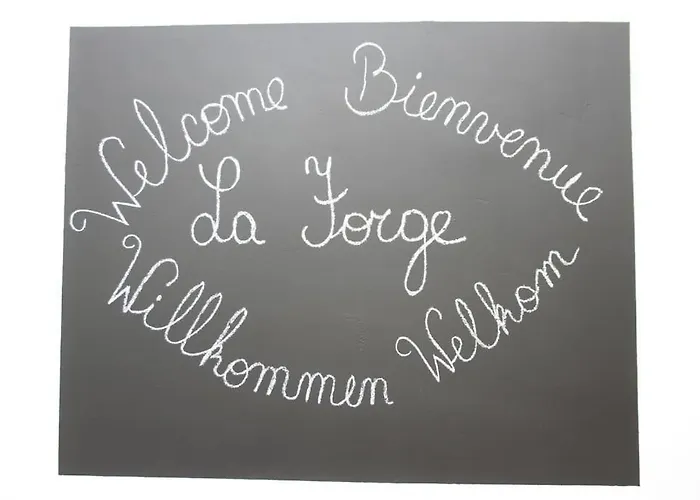 Welcome
Bienvenue
La Forge
Willkommen
Welkom